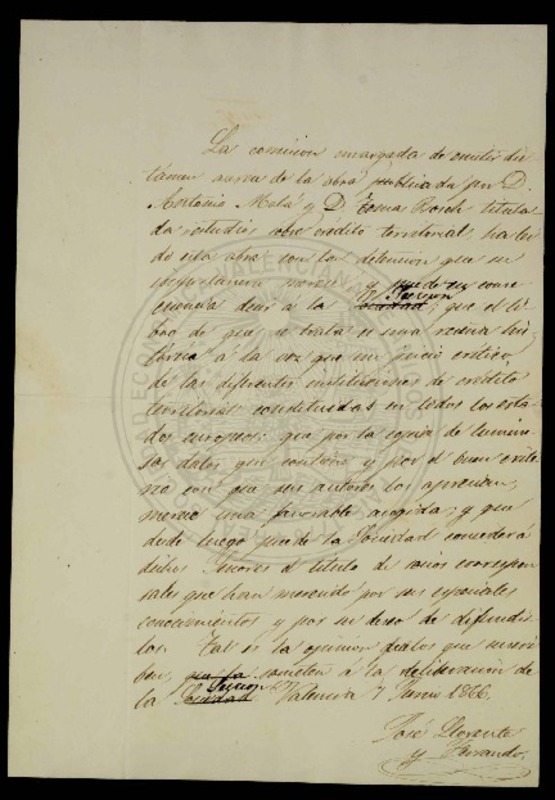 La comision encargada de emitir dic
támen acerca de la obra publicada por D.
Antonio Malá y D. Tomas Bosch titula
da estudios sobre crédito territorial, ha lei
do esta obra con la detencion que su
importancia merece, y puede en conse
cuencia decir á la sociedad Seccion; que el li
bro de que se trata es una reseña his
tórica á la vez que un juicio crítico,
de las diferentes instituciones de crédito
territorial constituidas en todos los esta
dos europeos: que por la copia de lumino
sos datos que contiene y por el buen crite
rio con que sus autores los aprecian,
merece una favorable acogida; y que
desde luego puede la Sociedad conceder á
dichos Señores el título de socios correspon
sales que han merecido por sus especiales
conocimientos y por su deseo de difundir
los. Tal es la opinion de los que suscri
ben, que la someten á la deliberacion de
la Sociedad Seccion. Valencia 7 Junio 1866.
José Llorente
y Ferrando.
VALENCIANA